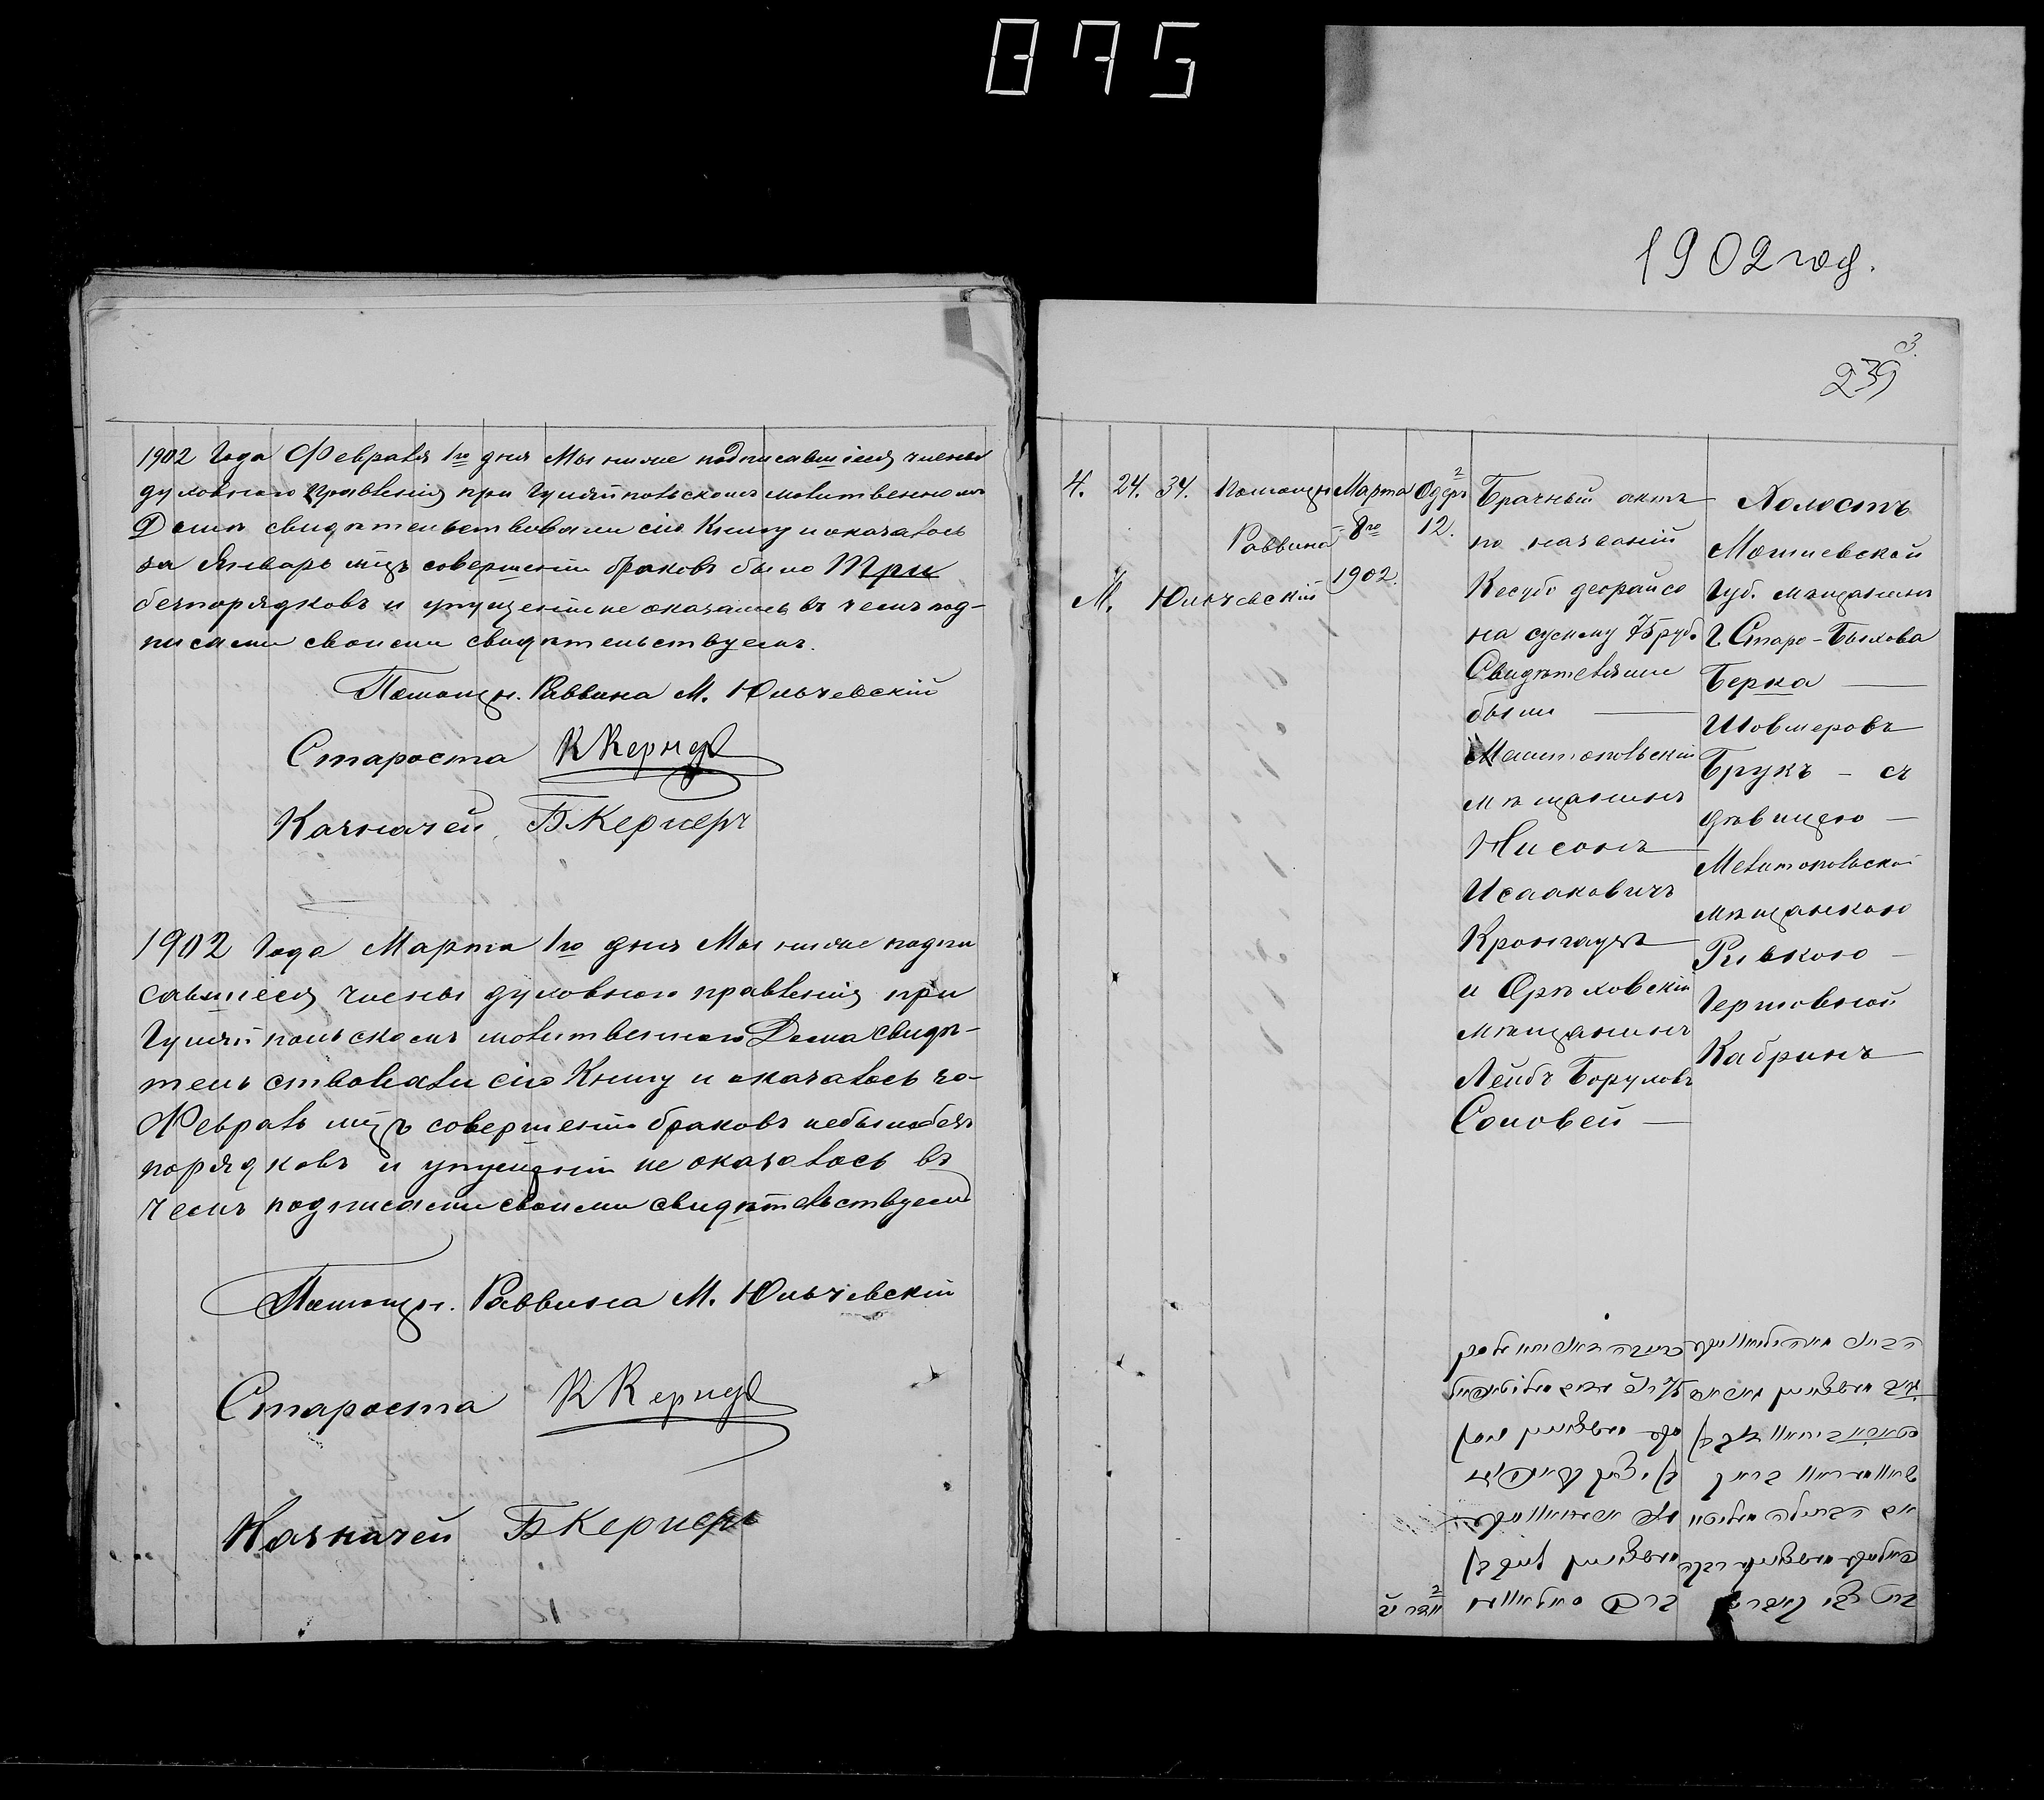 875
1902 год.
3.
239
1902 Года Февраля 1го дня Мы ниже подписавшіеся члены
духовнаго Правленія при Гуляйпольскомъ молитвенномъ
Домѣ свидѣтельствовали сію Книгу и оказалось
за Январь мѣць совершеніи браковъ было Три
безпорядковъ и упущеніи не оказалось въ чемъ под-
писами своими свидѣтельствуемъ.
Помощн. Раввина М. Юльчевскій
Староста К Кернер
Казначей Б Кернеръ
1902 Года Марта 1го дня Мы ниже подпи
савшіеся члены духовнаго правленія при
Гуляйпольскомъ молитвеннаго Дома свидѣ-
тельствовали сію Книгу и оказалось за-
Февраль мѣць совершеніи браковъ небыло без
порядковъ и упущеніи не оказалось въ
чемъ подписами своими свидѣтельствуемъ
Помощн. Раввина М. Юльчевскій
Староста К Кернер
Казначей Б Кернеръ
4. 24. 34. Помощн
Раввина
М. Юльчевскій
Марта
8го
1902.
2
Одеръ
12.
Брачный актъ
по названій
Кесубо деорайсо
на сумму 75 руб.
Свидѣтелями
были
Мелитопольскій
мѣщанинъ
Нисонъ
Исааковичъ
Кронгаузъ
и Орѣховскій
мѣщанинъ
Лейбъ Боруховъ
Соловей
Холостъ
Могилевской
Губ. мѣщанинъ
г. Старо-Быхова
Берка
Шовмеровъ
Брукъ - съ
дѣвицею
Мелитопольской
мѣщанкою
Ривкою
Гершовной
Кабринъ